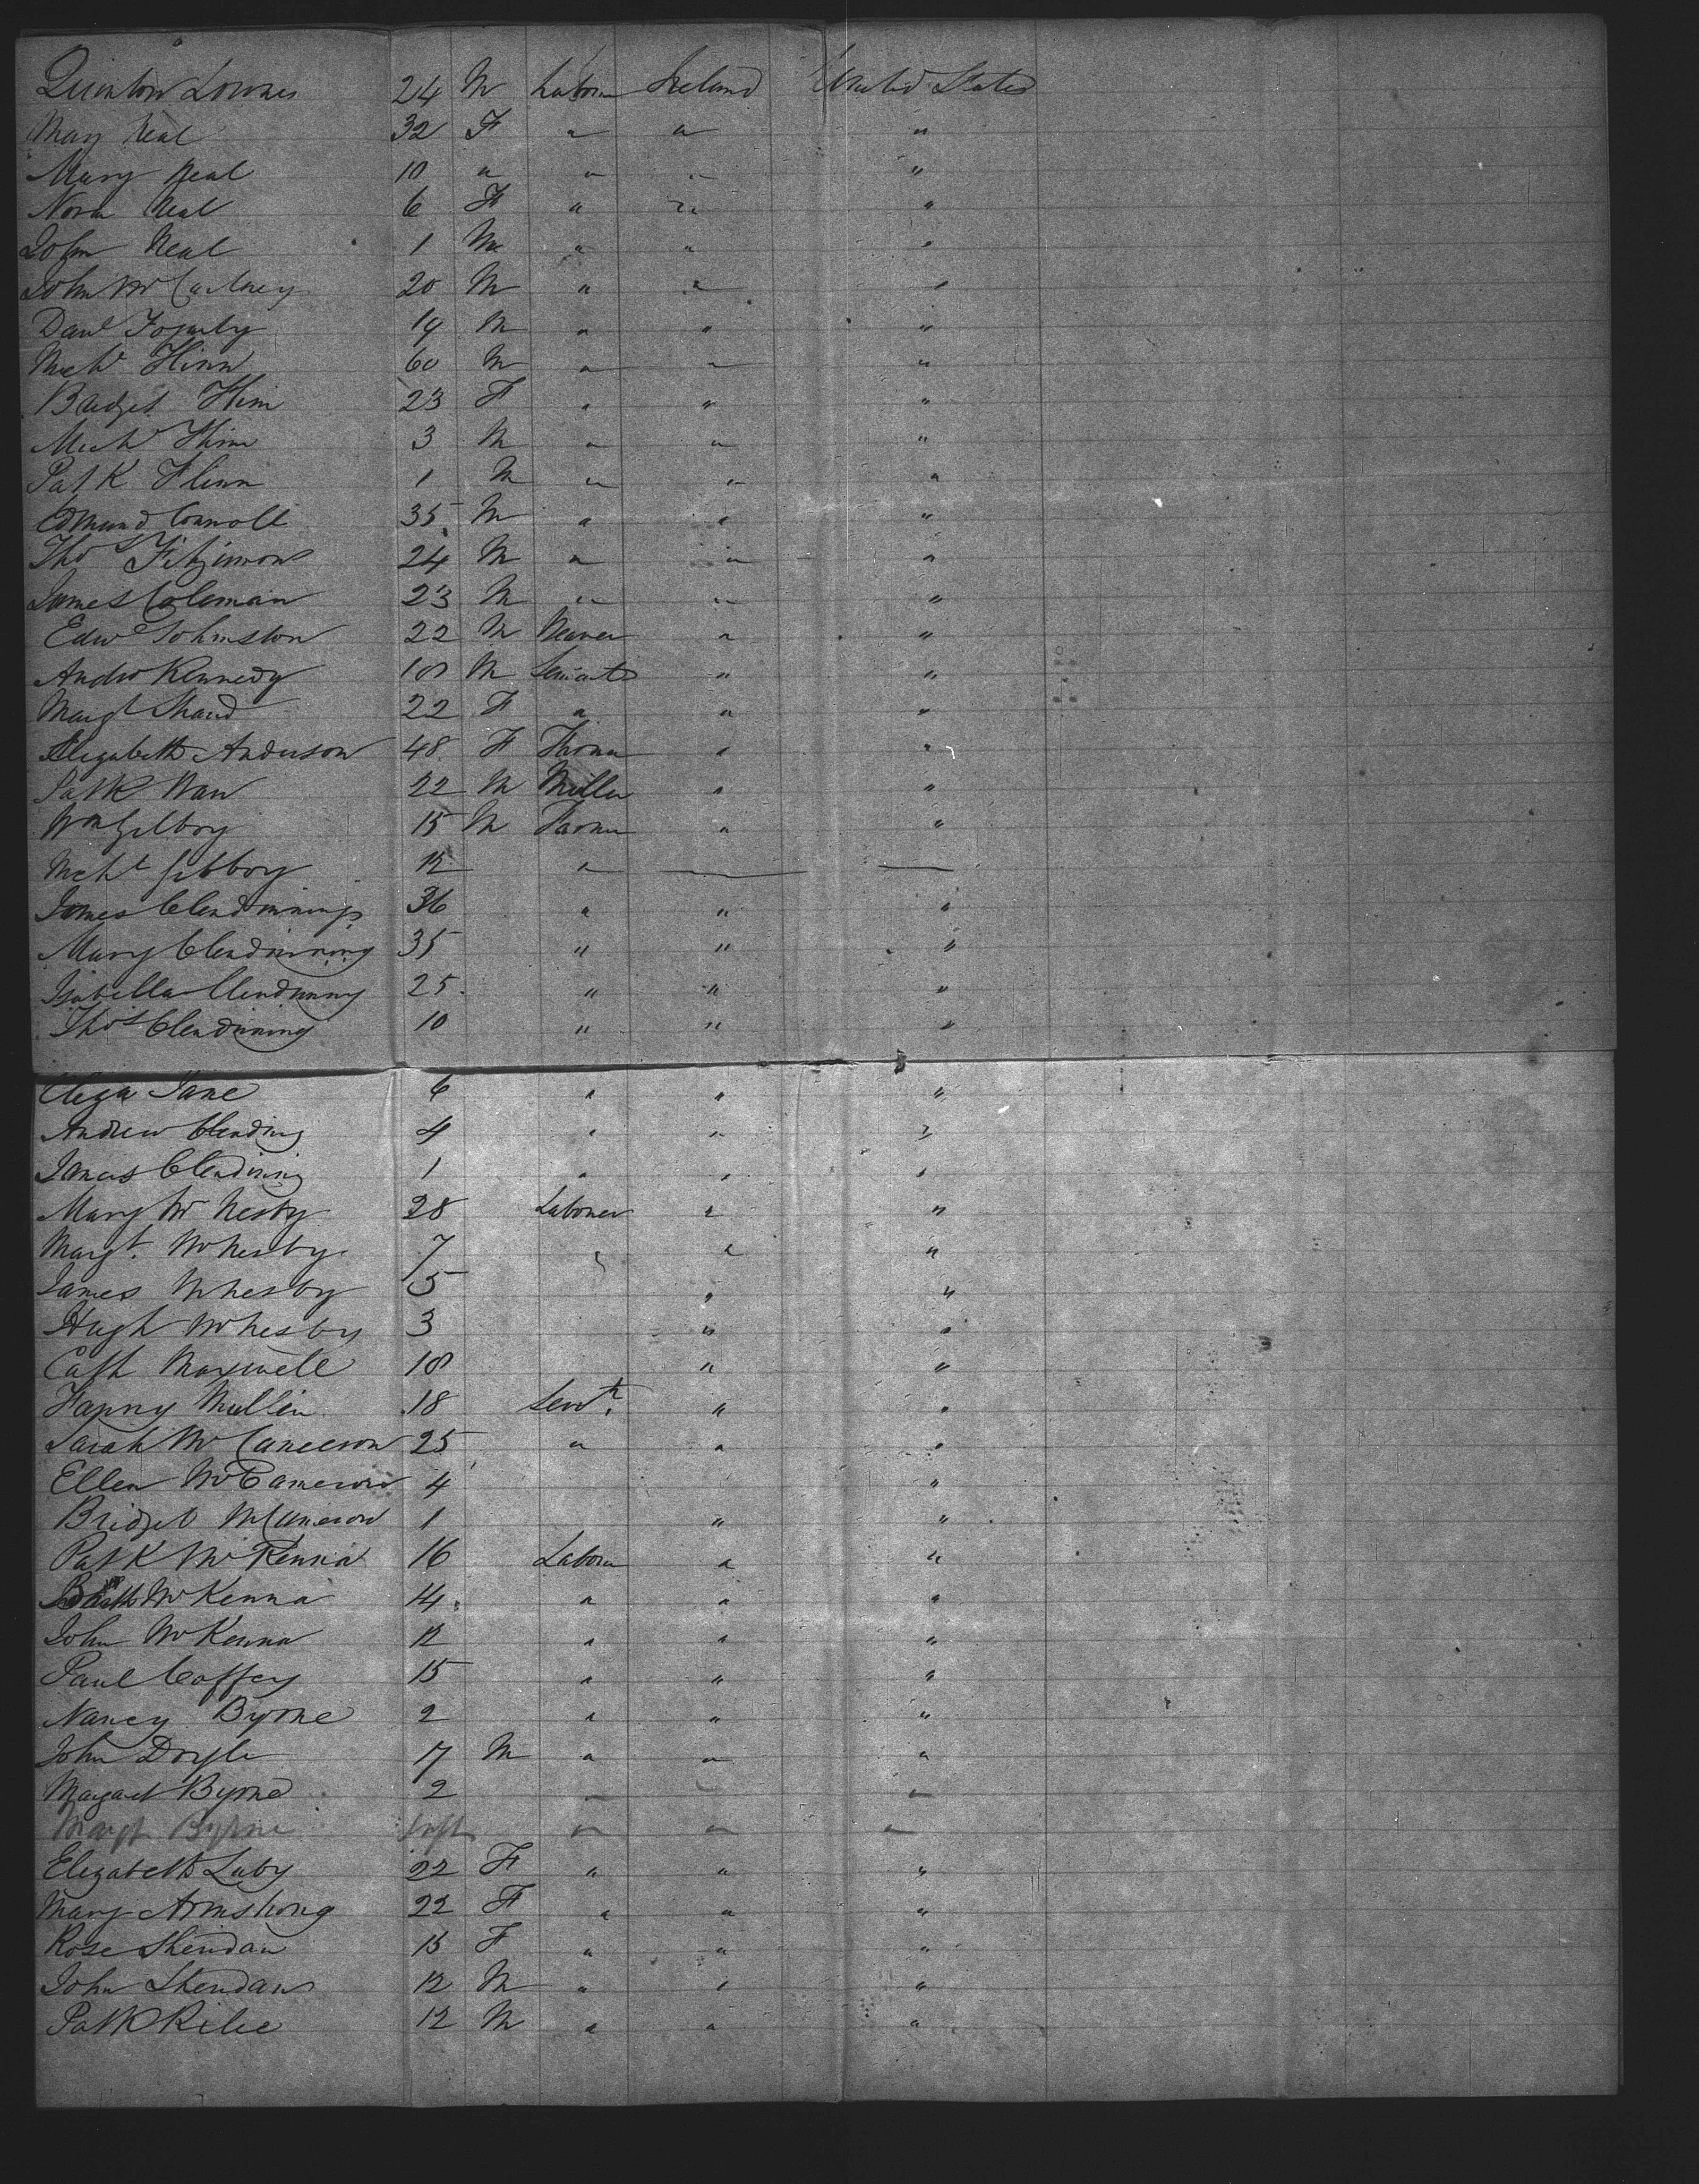 Quinton Lownes 24 M Labour Ireland United States
Mary Neal 32 F " " "
Mary Neal 10 " " " "
Nora Neal 6 F " " "
John Neal 1 M " " "
John McCartney 20 M " " "
Danl Fogarty 19 M " " "
Michl Flinn 60 M " " "
Bridget Flinn 23 F " " "
Michl Flinn 3 M " " "
Patk Flinn 1 M " " "
Edmund Connoll 35 M " " "
Thos Fitzimons 24 M " " "
James Coleman 23 M " " "
Edwd Johnston 22 M Weaver " "
Andw Kennedy 18 M Servants " "
Margt Shand 22 F " " "
Elizabeth Anderson 48 F Farmer " "
Patk 22 M Miller " "
Wm Gilboy 15 M Farmer " "
Michl Gilboy 12 "
James Clendinnings 36 " " "
Mary Clendinning 35 " " "
Isabella Clendinning 25 " " "
Thos Clendinning 10 " " "
Eliza Jane 6 " " "
Andrew Clending 4 " " "
James Clendining 1 " " "
Mary McNesby 28 Laborer " "
Margt McNesby 7 " " "
James McNesby 5 " "
Hugh McNesby 3 " "
Cath Maxwell 18 " "
Fanny Mullin 18 Servt " "
Sarah McCameron 25 " " "
Ellen McCameron 4 "
Bridget McCameron 1 " "
Patk McKenna 16 Labour " "
McKenna 14 " " "
John McKenna 12 " " "
Paul Coffey 15 " " "
Nancy Byrne 2 " " "
John Doyle 17 M " " "
Margaret Byrne 2 " " "
Margt Byrne Inft " " "
Elizabeth Luby 22 F " " "
Mary Armstrong 22 F " " "
Rose Sheridan 15 F " " "
John Sheridan 12 M " " "
Patk Rilee 12 M " " "